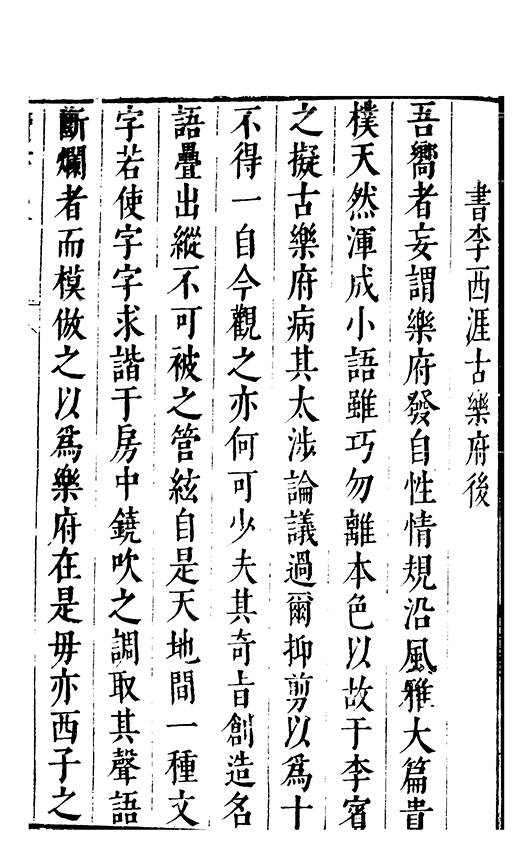 書李西涯古樂府後
吾嚮者妄謂樂府發自性情規沿風雅大篇貴
樸天然渾成小語雖巧勿離本色以故于李賓
之擬古樂府病其太涉論議過爾抑剪以爲十
不得一自今觀之亦何可少夫其奇旨創造名
語疊出縱不可被之管絃自是天地間一種文
字若使字字求諧于房中鐃吹之調取其聲語
斷爛者而模倣之以爲樂府在是毋亦西子之